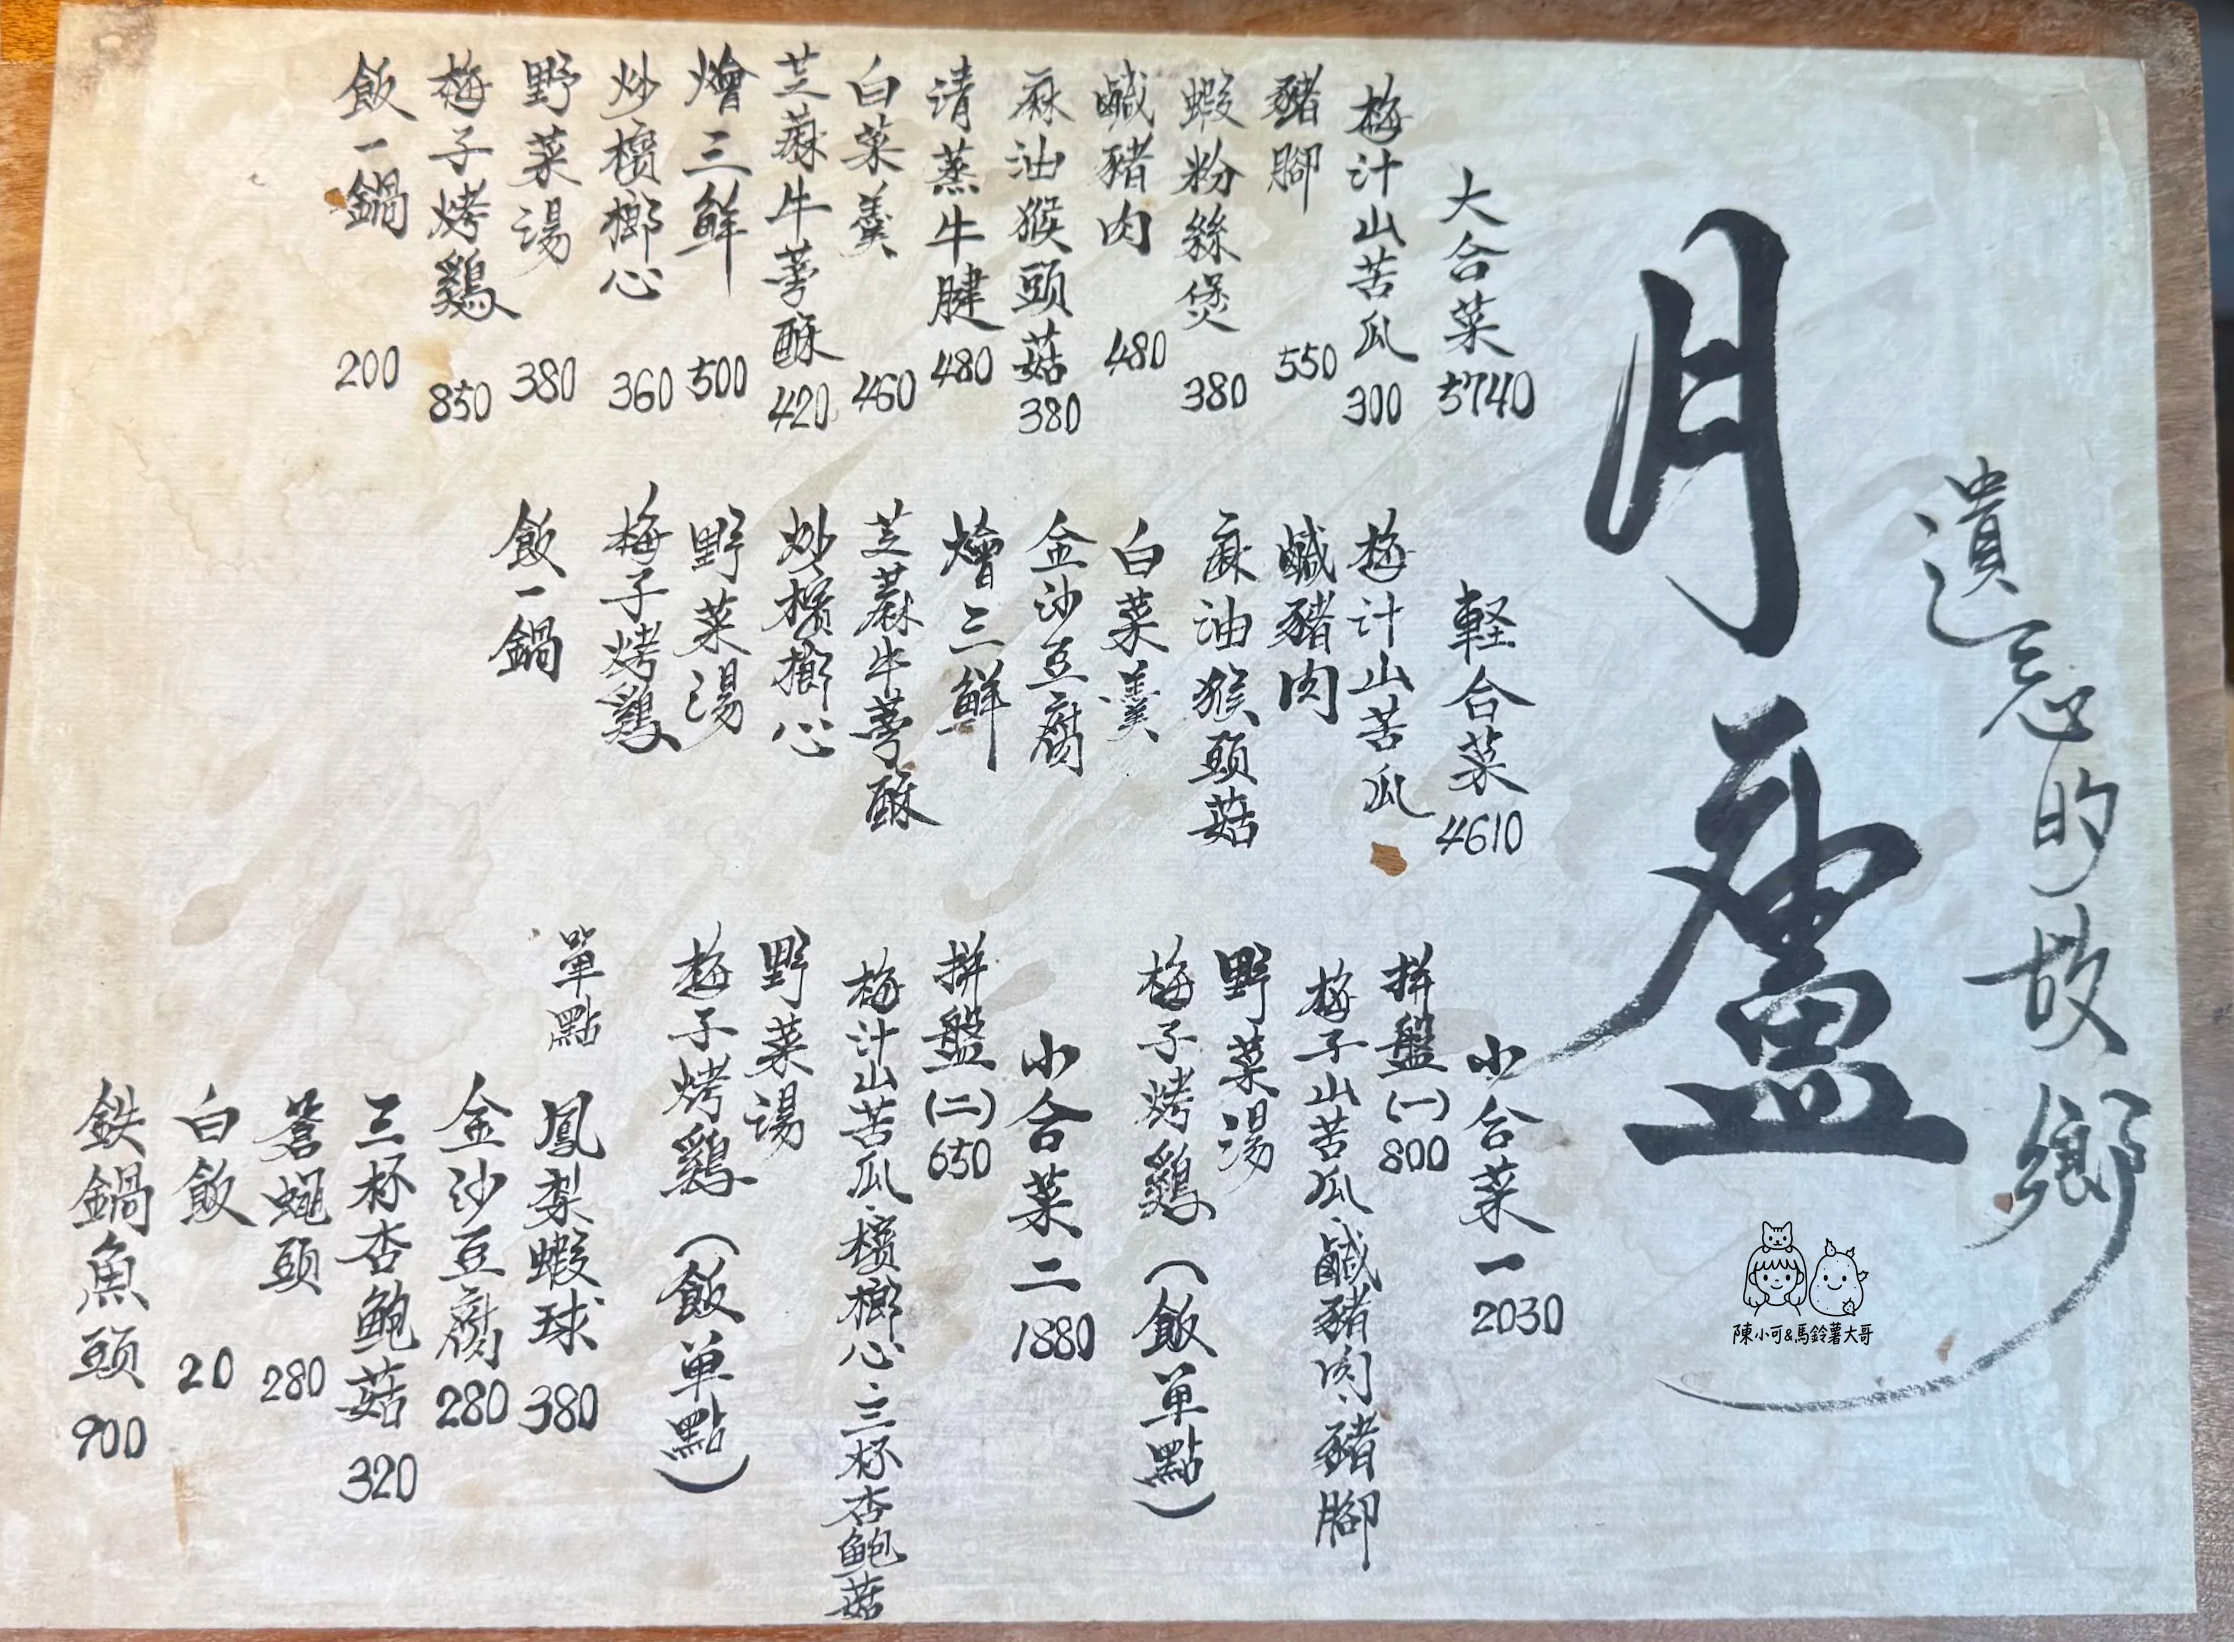 遺忘的故鄉
月廬
大合菜 5740
梅汁山苦瓜 300
豬腳 550
蝦粉絲煲 380
鹹豬肉 480
麻油猴頭菇 380
清蒸牛腱 480
白菜羹 460
芝蔴牛蒡酥 420
燴三鮮 500
炒檳榔心 360
野菜湯 380
梅子烤鷄 850
飯一鍋 200
軽合菜 4610
梅汁山苦瓜
鹹豬肉
麻油猴頭菇
白菜羹
金沙豆腐
燴三鮮
芝蔴牛蒡酥
炒檳榔心
野菜湯
梅子烤鷄
飯一鍋
小合菜一 2030
拼盤(一) 800
梅子山苦瓜、鹹豬肉、豬腳
野菜湯
梅子烤鷄(飯单點)
小合菜二 1880
拼盤(二) 650
梅汁山苦瓜、檳榔心、三杯杏鮑菇
野菜湯
梅子烤鷄(飯单點)
單點
鳳梨蝦球 380
金沙豆腐 280
三杯杏鮑菇 320
蒼蠅頭 280
白飯 20
鉄鍋魚頭 900
陳小可&馬鈴薯大哥